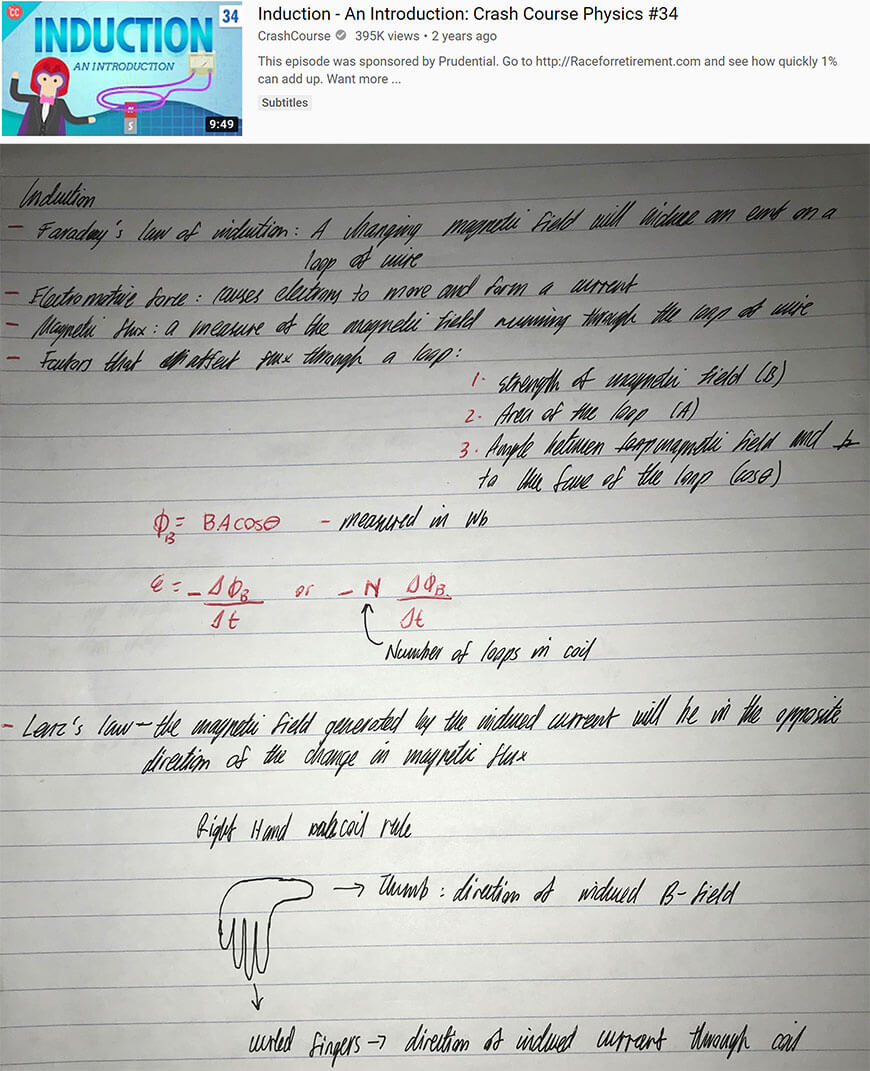 CC
34
INDUCTION
AN INTRODUCTION
N
S
9:49
Induction - An Introduction: Crash Course Physics #34
CrashCourse 395K views • 2 years ago
This episode was sponsored by Prudential. Go to http://Raceforretirement.com and see how quickly 1%
can add up. Want more ...
Subtitles
Induction
- Faraday's law of induction: A changing magnetic field will induce an emf on a
loop of wire
- Electromotive force: causes electrons to move and form a current
- Magnetic flux: a measure of the magnetic field running through the loop of wire
- Factors that affect flux through a loop:
1. strength of magnetic field (B)
2. Area of the loop (A)
3. Angle between loop magnetic field and
to the face of the loop (cosθ)
Φ_B = BAcosθ - measured in Wb
ε = - ΔΦ_B / Δt or - N ΔΦ_B / Δt
Number of loops in coil
- Lenz's law - the magnetic field generated by the induced current will be in the opposite
direction of the change in magnetic flux
Right Hand coil rule
→ Thumb: direction of induced B-field
curled fingers → direction of induced current through coil